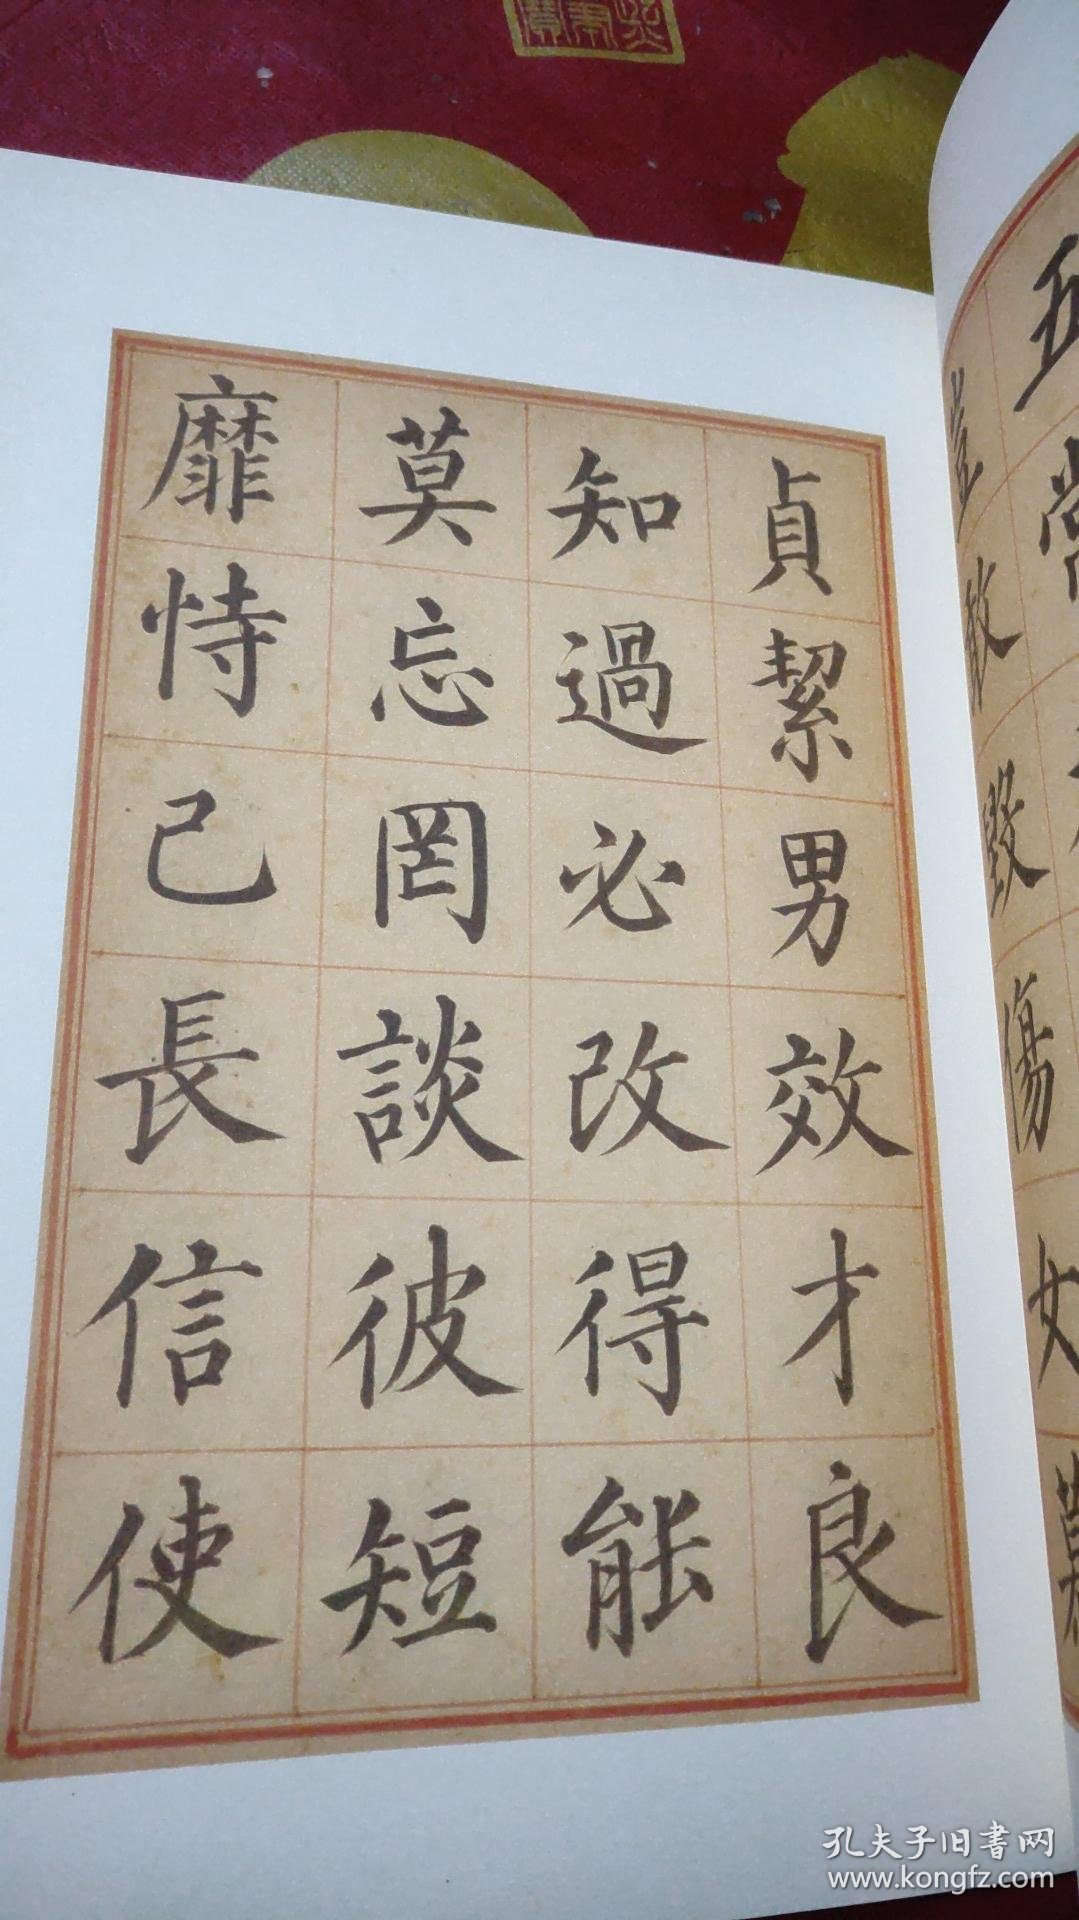 五常
豈敢毀傷女慕
貞絜男效才良
知過必改得能
莫忘罔談彼短
靡恃己長信使
孔夫子旧書网
www.kongfz.com